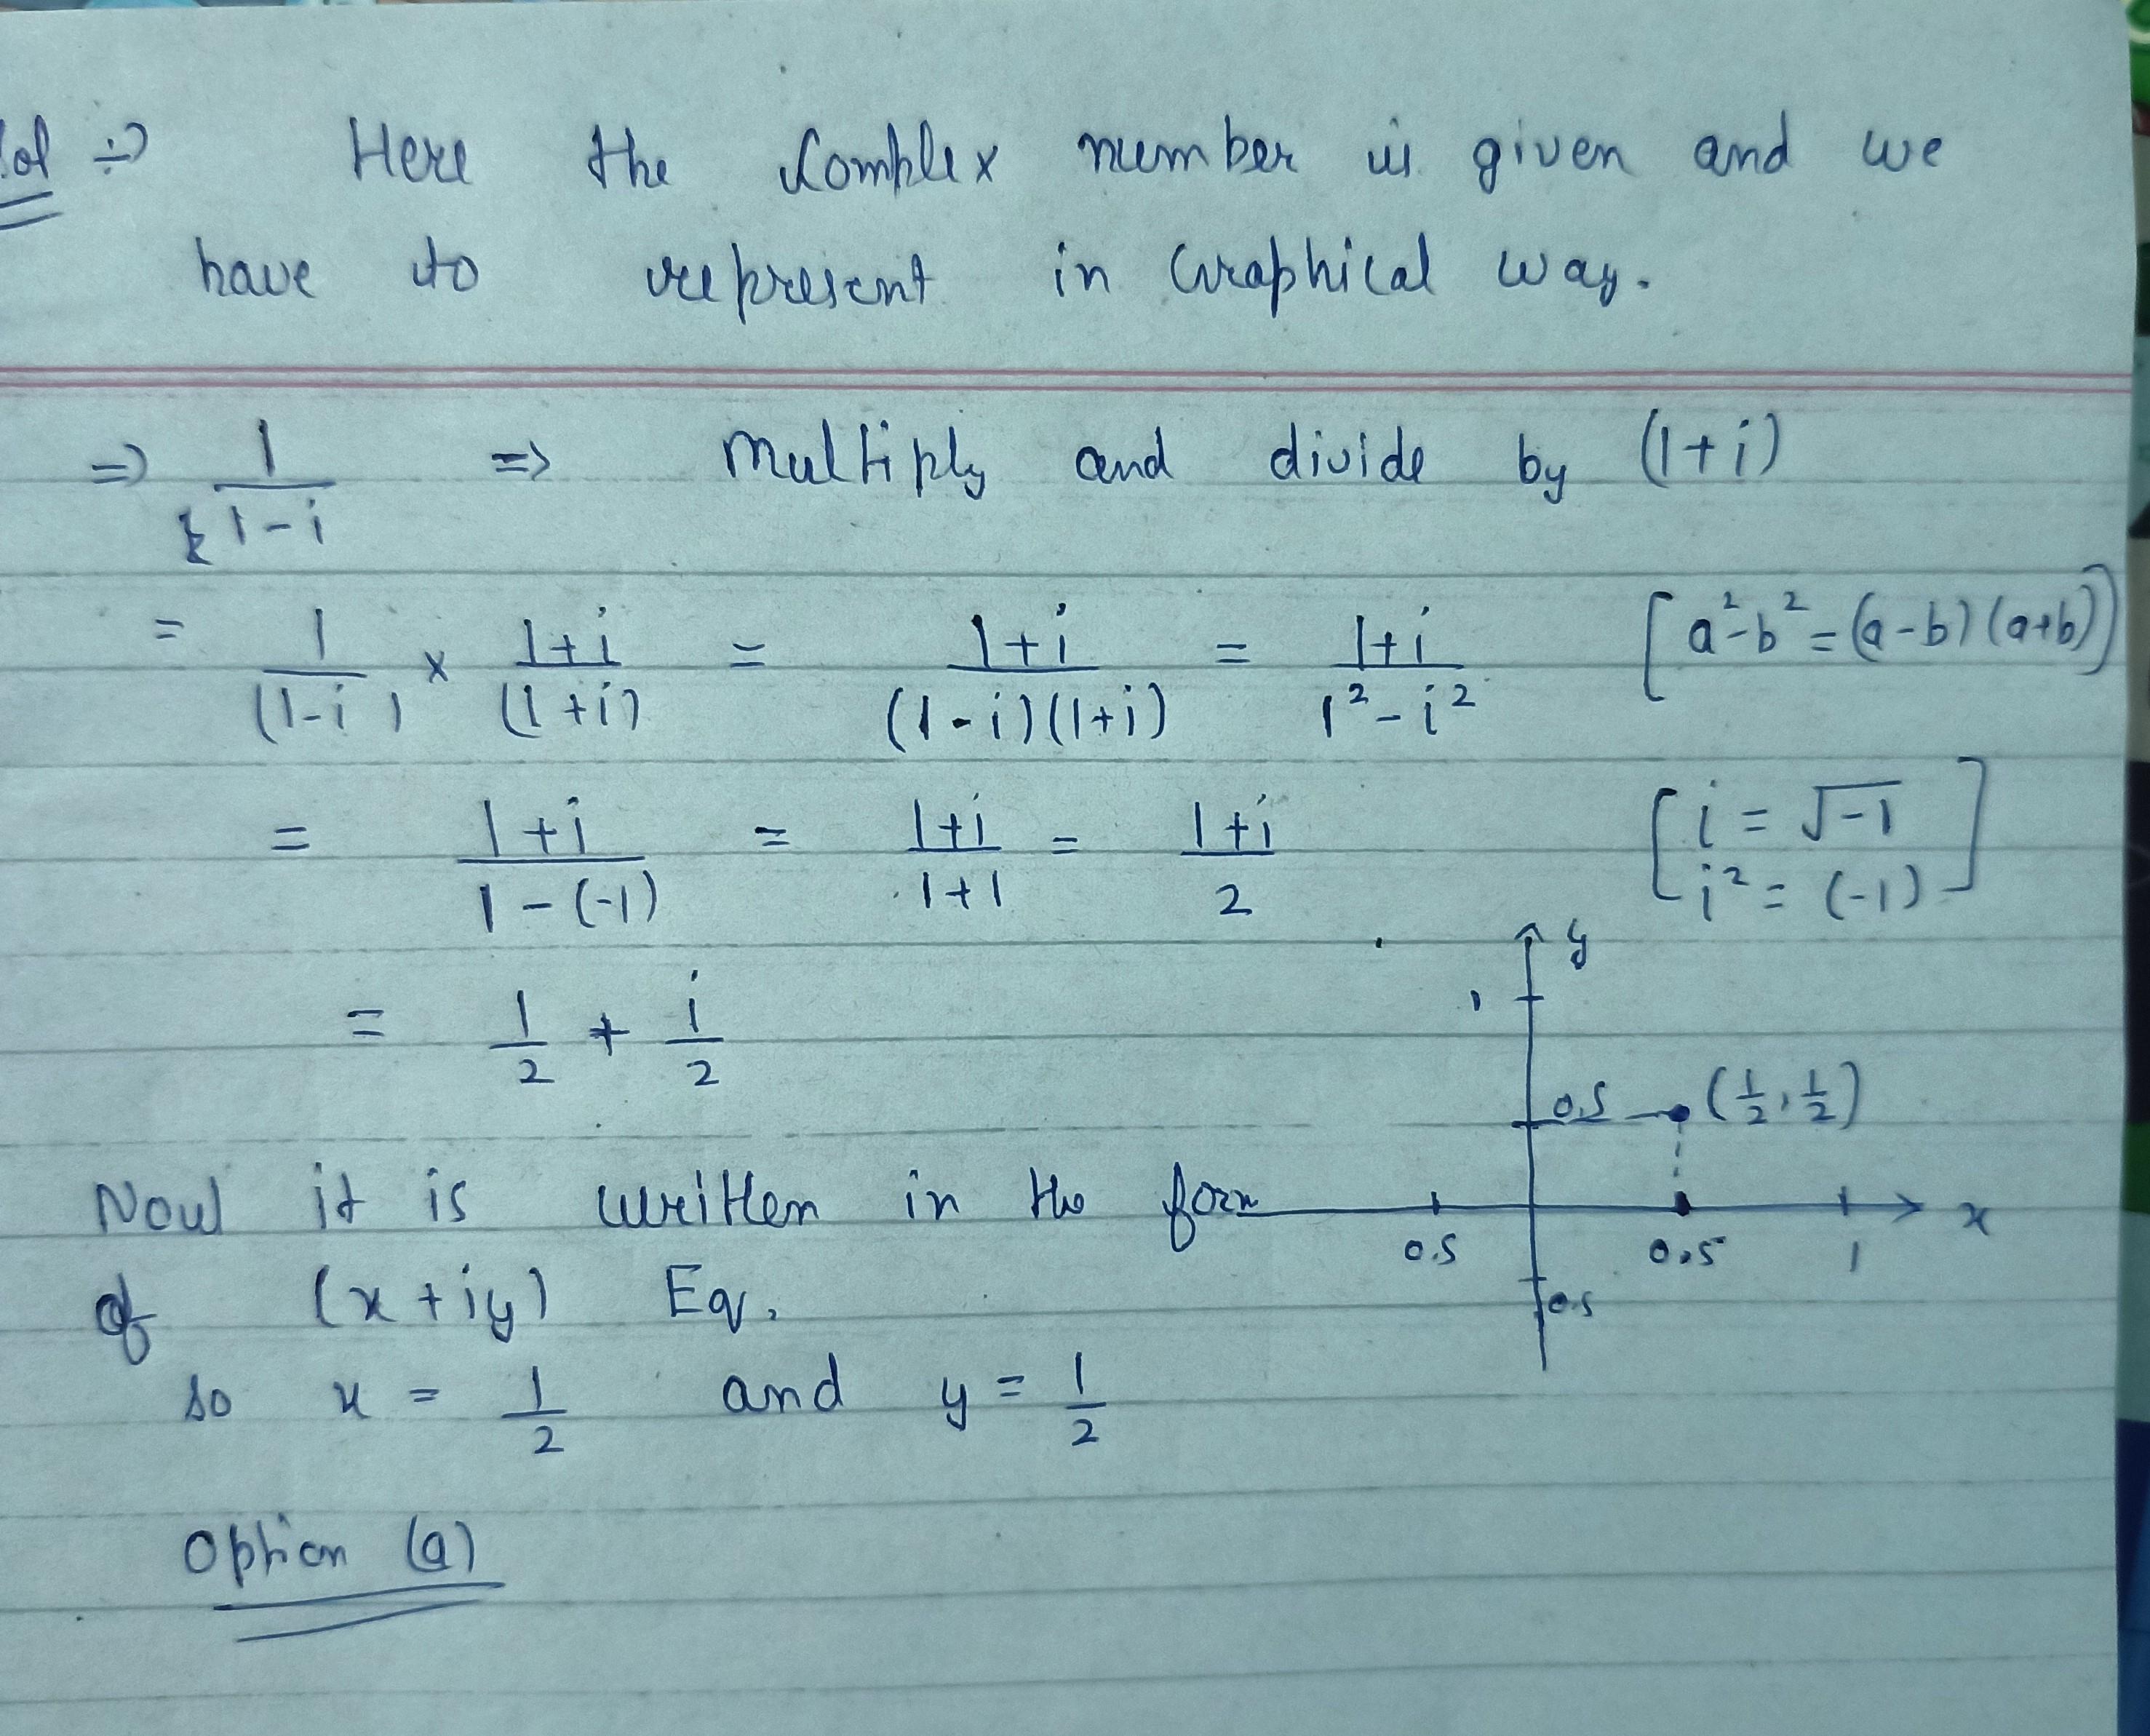 Sol ⇒ Here the Complex number is given and we
have to represent in Graphical way.
⇒ 1/(1-i) ⇒ Multiply and divide by (1+i)
= 1/(1-i) × (1+i)/(1+i) = (1+i)/((1-i)(1+i)) = (1+i)/(1²-i²) [a²-b²=(a-b)(a+b)]
= (1+i)/(1-(-1)) = (1+i)/(1+1) = (1+i)/2 [i = √-1
i² = (-1)]
= 1/2 + i/2
y
1
0.5 (1/2, 1/2)
x
0.5 0.5 1
0.5
Now it is written in the form
of (x+iy) Eq.
so x = 1/2 and y = 1/2
Option (a)